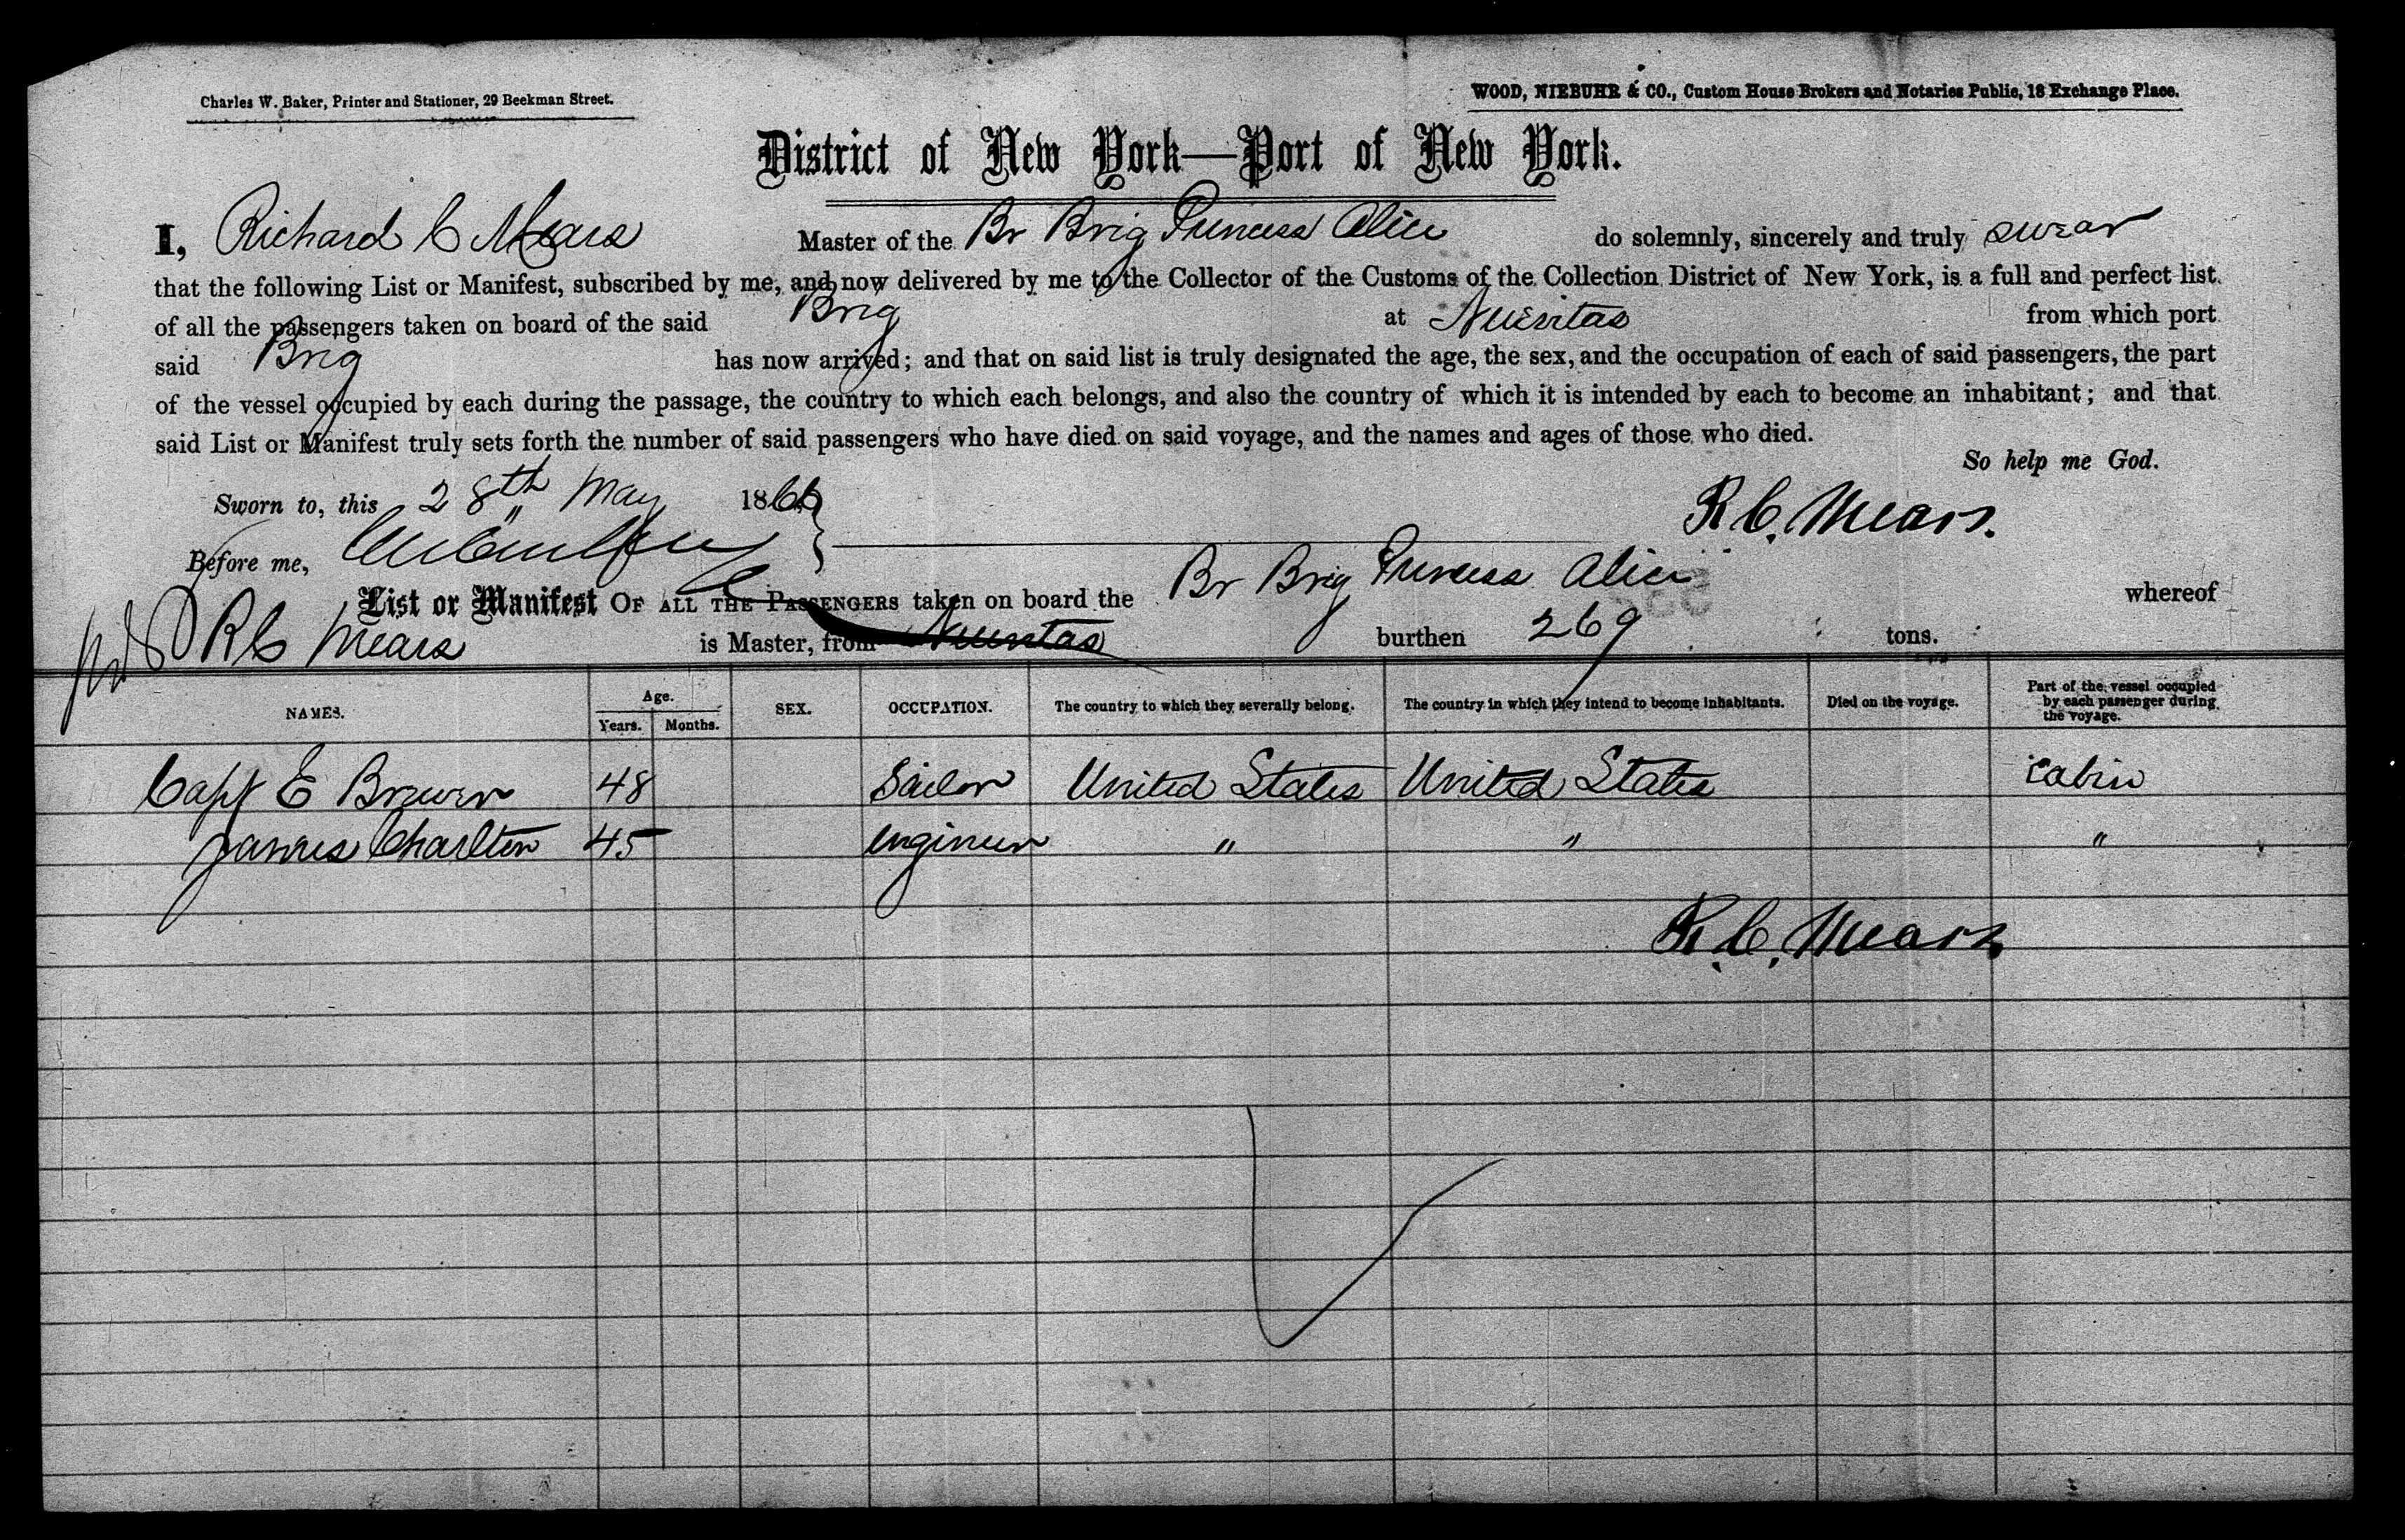 Charles W. Baker, Printer and Stationer, 29 Beekman Street.
WOOD, NIEBUHR & CO., Custom House Brokers and Notaries Public, 18 Exchange Place.
District of New York—Port of New York.
I, Richard C Mears Master of the Br Brig Princess Alice do solemnly, sincerely and truly swear
that the following List or Manifest, subscribed by me, and now delivered by me to the Collector of the Customs of the Collection District of New York, is a full and perfect list
of all the passengers taken on board of the said Brig at Nuevitas from which port
said Brig has now arrived; and that on said list is truly designated the age, the sex, and the occupation of each of said passengers, the part
of the vessel occupied by each during the passage, the country to which each belongs, and also the country of which it is intended by each to become an inhabitant; and that
said List or Manifest truly sets forth the number of said passengers who have died on said voyage, and the names and ages of those who died.
So help me God.
Sworn to, this 28th May 1866
R. C. Mears.
Before me,
List or Manifest OF ALL THE PASSENGERS taken on board the Br Brig Princess Alice whereof
R C Mears is Master, from Nuevitas burthen 269 tons.
NAMES. Age. Years. Months. SEX. OCCUPATION. The country to which they severally belong. The country in which they intend to become inhabitants. Died on the voyage. Part of the vessel occupied by each passenger during the voyage.
Capt E Brewer 48 Sailor United States United States Cabin
James Charlton 45 engineer " " "
R. C. Mears